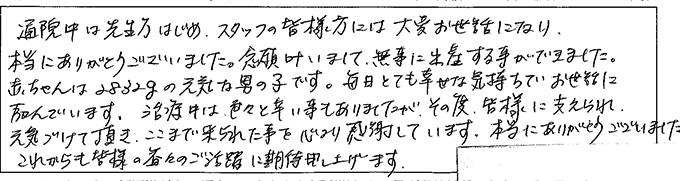 通院中は先生方はじめ、スタッフの皆様方には大変お世話になり、
本当にありがとうございました。念願叶いまして、無事に出産する事ができました。
赤ちゃんは2832gの元気な男の子です。毎日とても幸せな気持ちでお世話に
励んでいます。治療中は色々と辛い事もありましたが、その後、皆様に支えられ、
元気づけて頂き、ここまで来られた事を心より感謝しています。本当にありがとうございました
これからも皆様の益々のご活躍に期待申し上げます。